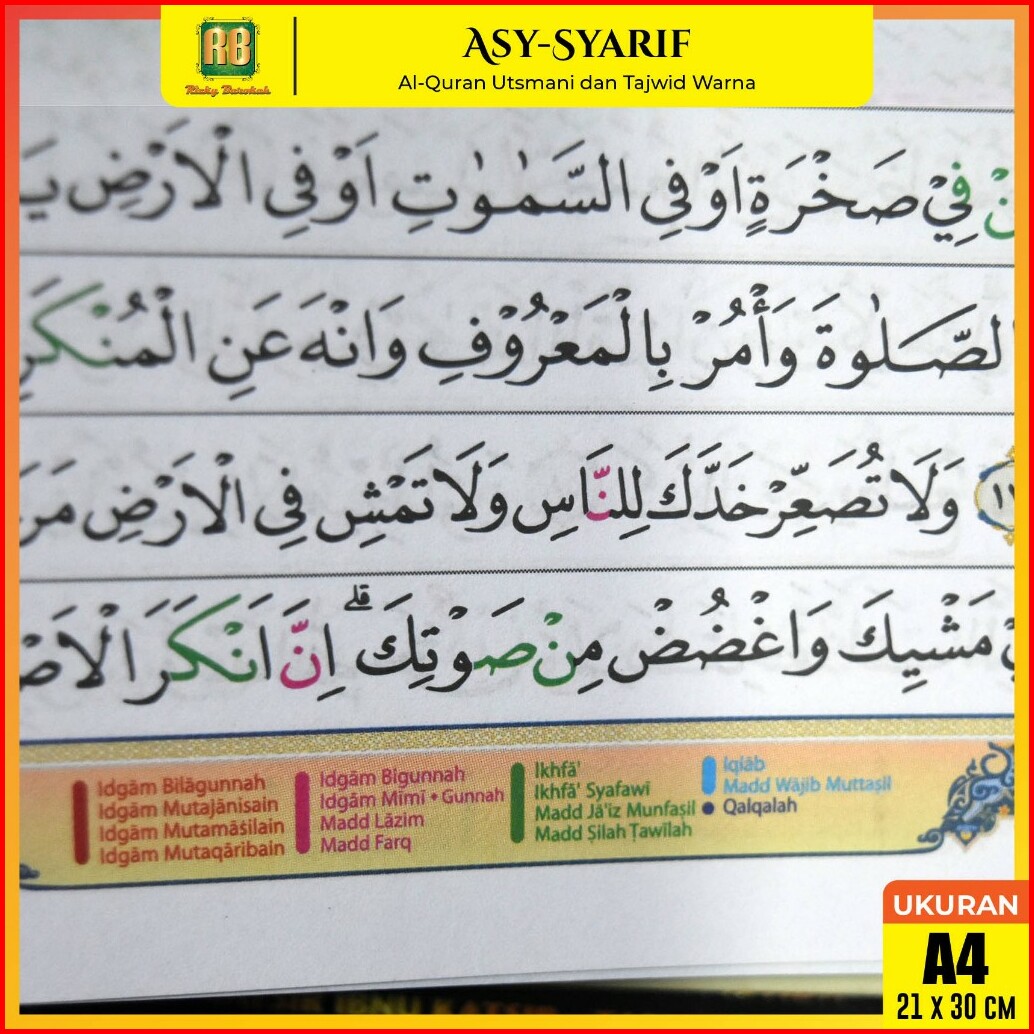 RB
Rizky Barokah
ASY-SYARIF
Al-Quran Utsmani dan Tajwid Warna
فِيْ صَخْرَةٍ اَوْ فِى السَّمٰوٰتِ اَوْ فِى الْاَرْضِ
الصَّلٰوةَ وَأْمُرْ بِالْمَعْرُوْفِ وَانْهَ عَنِ الْمُنْكَرِ
وَلَا تُصَعِّرْ خَدَّكَ لِلنَّاسِ وَلَا تَمْشِ فِى الْاَرْضِ
مَشْيِكَ وَاغْضُضْ مِنْ صَوْتِكَۗ اِنَّ اَنْكَرَ
Idgām Bilāgunnah
Idgām Mutajānisain
Idgām Mutamāṡilain
Idgām Mutaqāribain
Idgām Bigunnah
Idgām Mīmī • Gunnah
Madd Lāzim
Madd Farq
Ikhfā'
Ikhfā' Syafawī
Madd Jā'iz Munfaṣil
Madd Ṣilah Ṭawīlah
Iqlāb
Madd Wājib Muttaṣil
Qalqalah
UKURAN
A4
21 X 30 CM